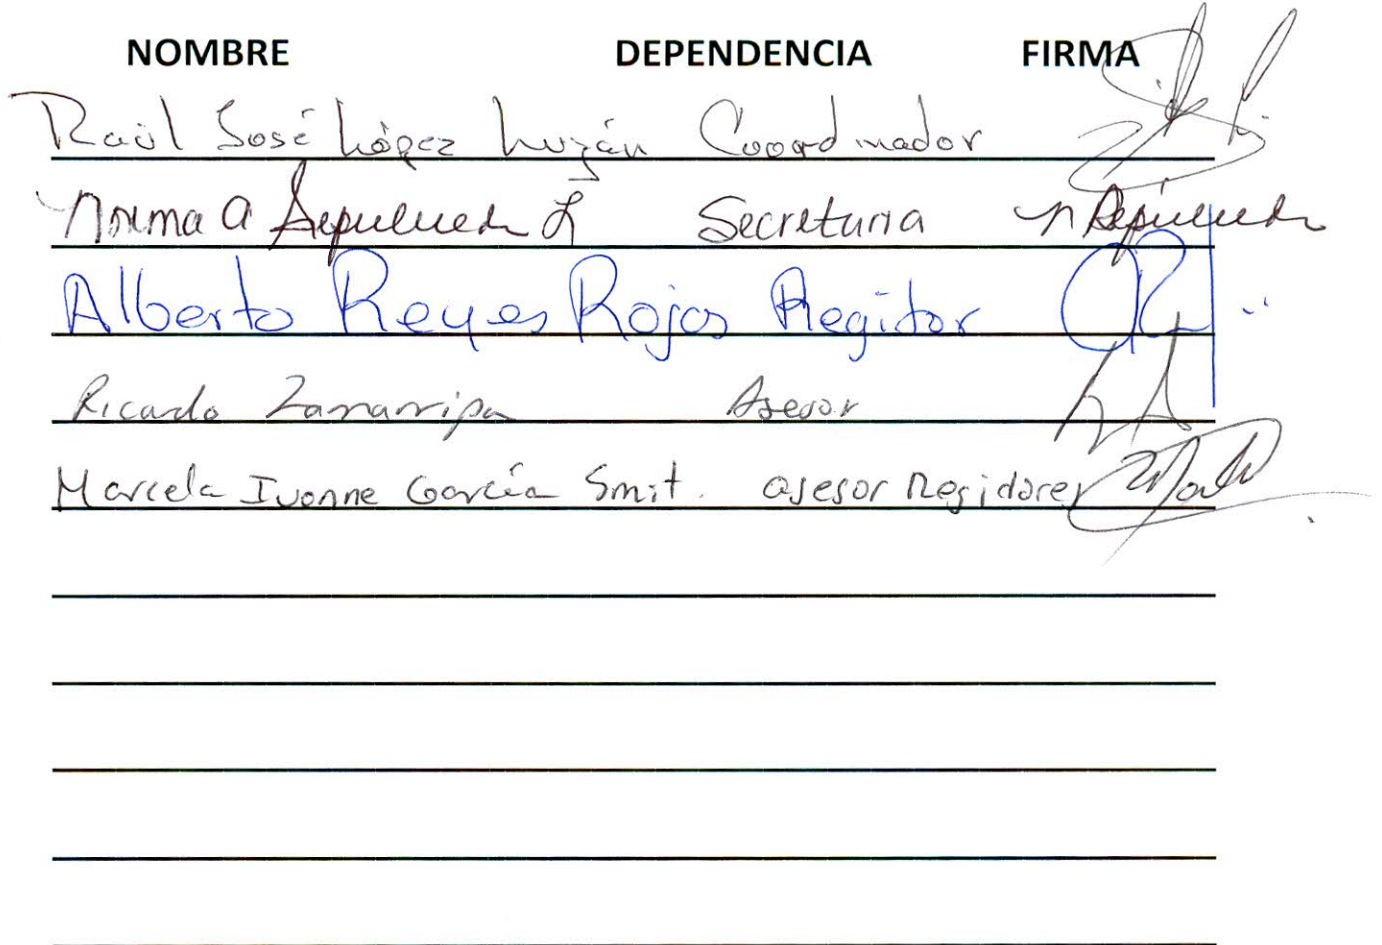 NOMBRE DEPENDENCIA FIRMA
Raúl José López Luján Coordinador
Norma A Sepulveda L Secretaria n Sepúlveda
Alberto Reyes Rojas Regidor
Ricardo Zamarripa Asesor
Marcela Ivonne García Smit. asesor Regidores